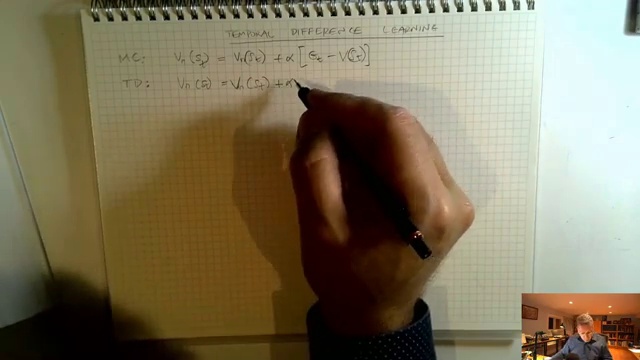 TEMPORAL DIFFERENCE LEARNING
MC: Vπ(St) = Vπ(St) + α [Gt − V(St)]
TD: Vπ(St) = Vπ(St) + α